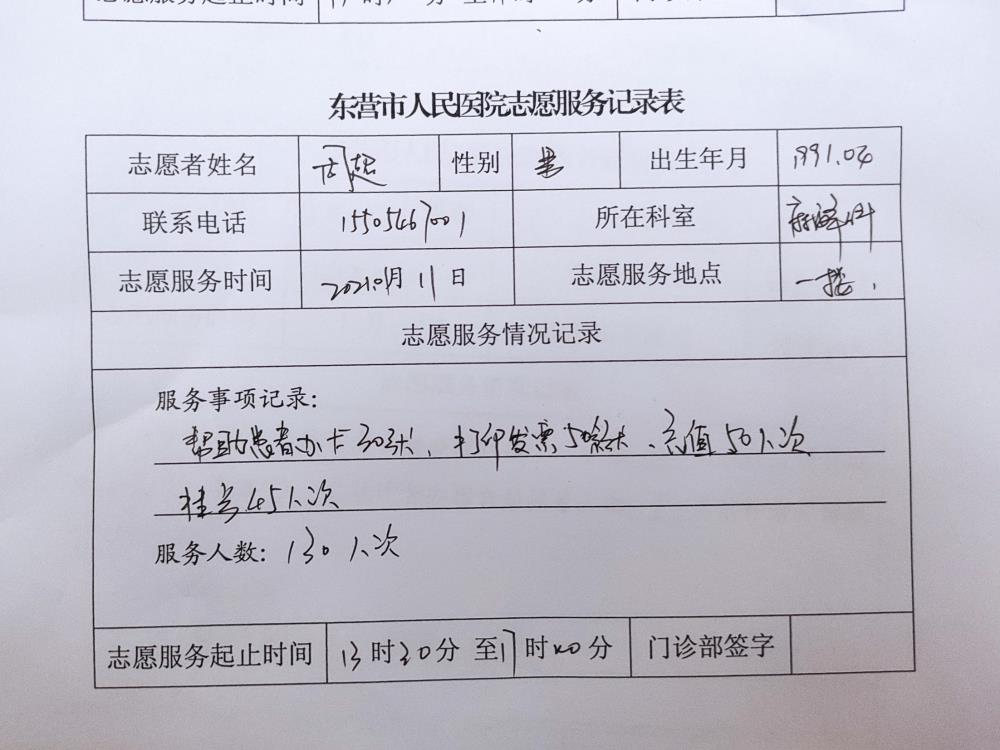 志愿服务起止时间
东营市人民医院志愿服务记录表
志愿者姓名 周超 性别 男 出生年月 1991.04
联系电话 15505467001 所在科室 麻醉科
志愿服务时间 2021年01月11日 志愿服务地点 一楼
志愿服务情况记录
服务事项记录:
帮助患者办卡30张、打印发票50余张、充值50人次
挂号45人次
服务人数: 130人次
志愿服务起止时间 13时30分 至17时00分 门诊部签字